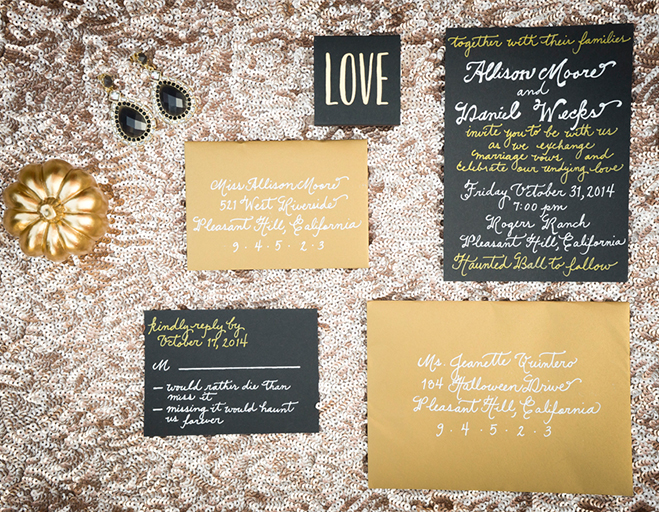 LOVE
together with their families
Allison Moore
and
Daniel Weeks
invite you to be with us
as we exchange
marriage vows and
celebrate our undying love
Friday October 31, 2014
7:00 pm
Rogers Ranch
Pleasant Hill, California
Haunted Ball to follow
Miss Allison Moore
521 West Riverside
Pleasant Hill, California
9 · 4 · 5 · 2 · 3
kindly reply by
October 17, 2014
M
— would rather die than
miss it
— missing it would haunt
us forever
Ms. Jeanette Quintero
184 Halloween Drive
Pleasant Hill, California
9 · 4 · 5 · 2 · 3